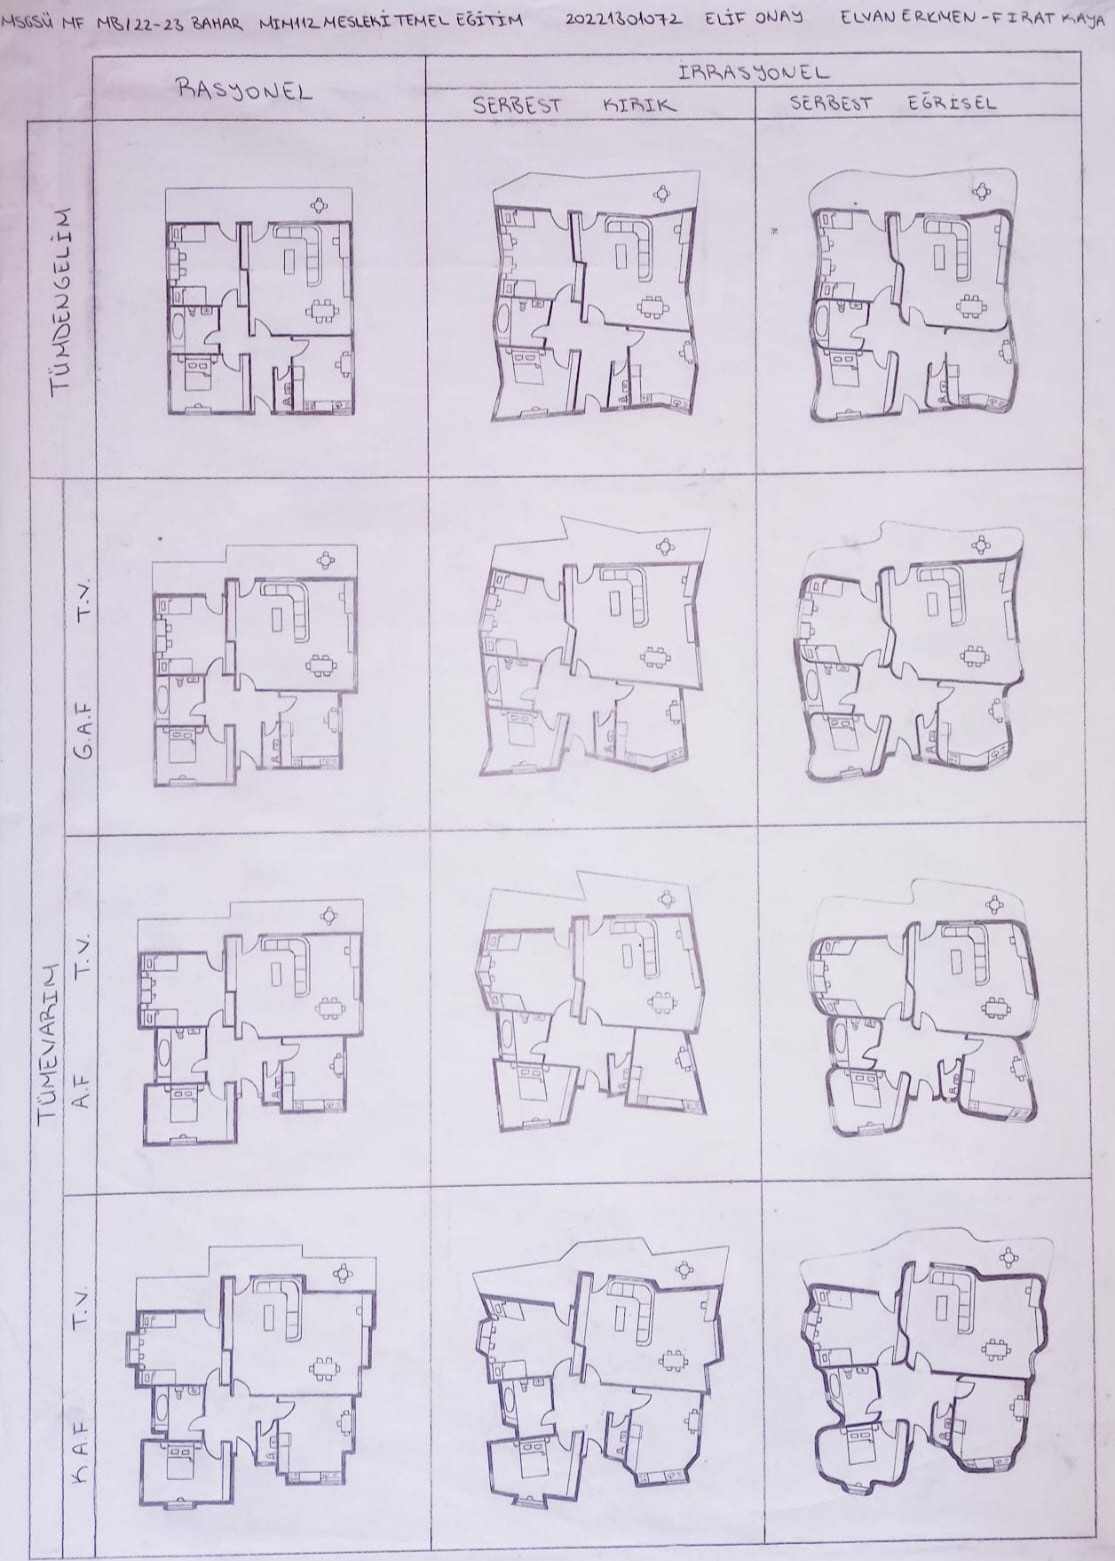 MSGSÜ MF MB/22-23 BAHAR MIM112 MESLEKİ TEMEL EĞİTİM 20221301072 ELİF ONAY ELVAN ERKMEN-FIRAT KAYA
RASYONEL
İRRASYONEL
SERBEST KIRIK
SERBEST EĞRİSEL
TÜMDENGELİM
TÜMEVARIM
G.A.F T.V.
A.F T.V.
K.A.F T.V.